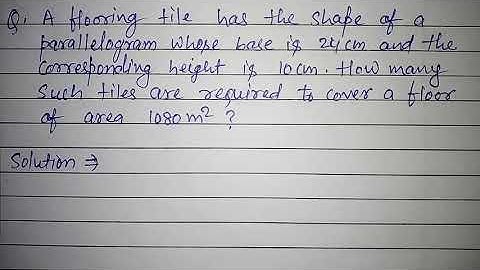 Q. A flooring tile has the shape of a
parallelogram whose base is 24cm and the
corresponding height is 10cm. How many
such tiles are required to cover a floor
of area 1080m²?
Solution ⇒